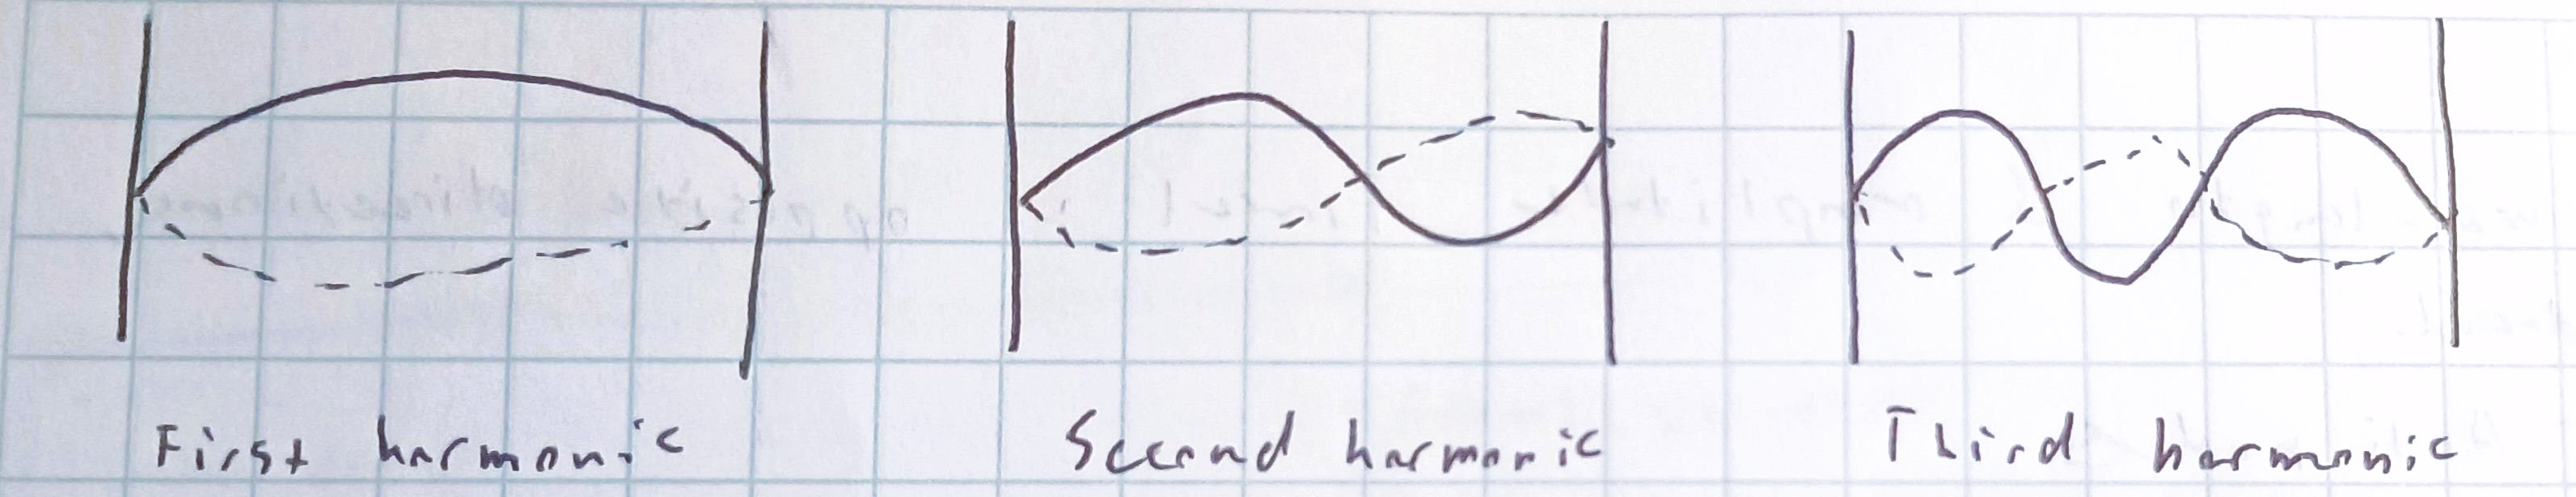 First harmonic
Second harmonic
Third harmonic